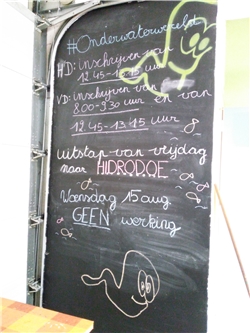 #Onderwaterwereld
HD: inschrijven van
12.45-13.15 uur
VD: inschrijven van
8.00-9.30 uur en van
12.45-13.15 uur
uitstap van vrijdag
naar HIDRODOE
Woensdag 15 aug.
GEEN werking